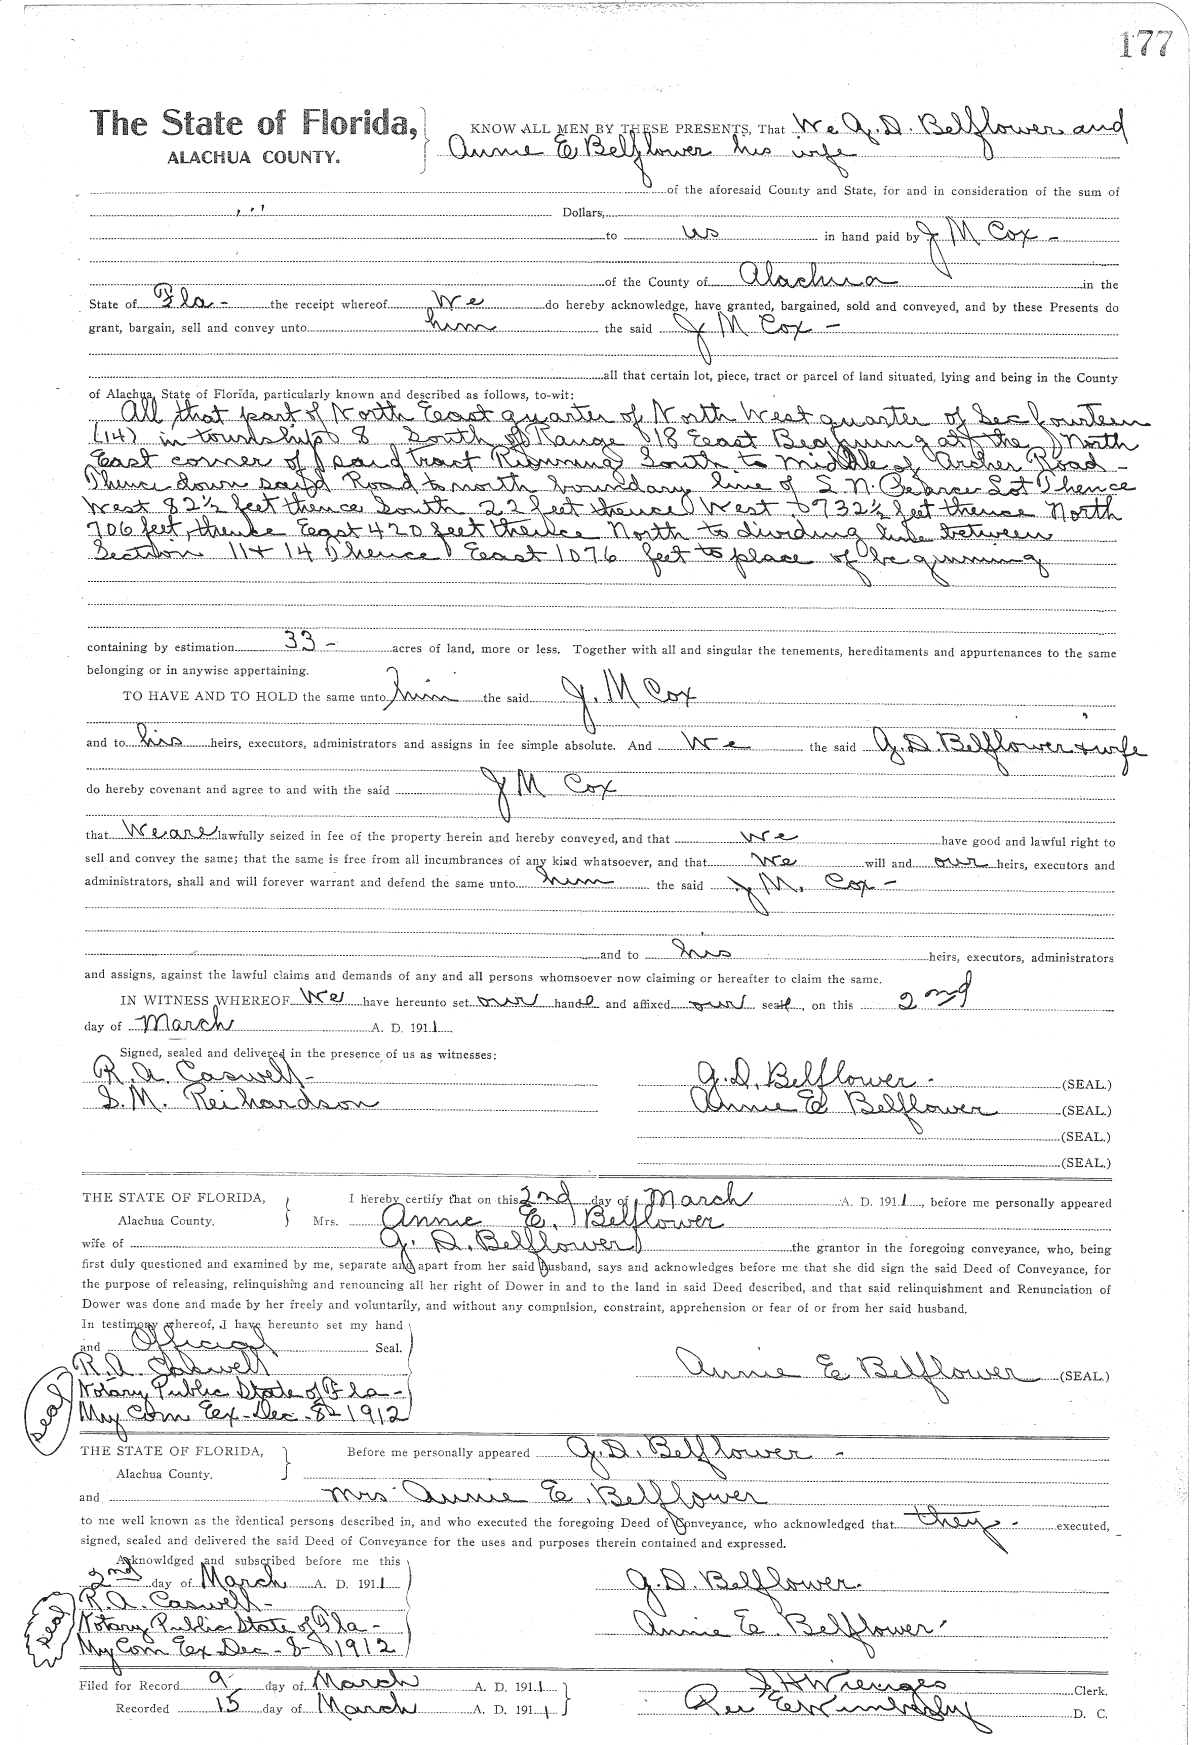 177
The State of Florida, KNOW ALL MEN BY THESE PRESENTS, That We G. D. Belflower and
ALACHUA COUNTY. Annie E Belflower his wife
of the aforesaid County and State, for and in consideration of the sum of
Dollars,
to us in hand paid by J M Cox -
of the County of Alachua in the
State of Fla - the receipt whereof We do hereby acknowledge, have granted, bargained, sold and conveyed, and by these Presents do
grant, bargain, sell and convey unto him the said J M Cox -
all that certain lot, piece, tract or parcel of land situated, lying and being in the County
of Alachua, State of Florida, particularly known and described as follows, to-wit:
All that part of North East quarter of North West quarter of Sec fourteen
(14) in township 8 South of Range 18 East Beginning at the North
East corner of said tract Running South to middle of Archer Road -
Thence down said Road to north boundary line of S. N. Pearce Lot Thence
West 82½ feet thence South 22 feet thence West 732½ feet thence North
706 feet, thence East 420 feet thence North to dividing line between
Section 11 + 14 Thence East 1076 feet to place of beginning
containing by estimation 33 - acres of land, more or less. Together with all and singular the tenements, hereditaments and appurtenances to the same
belonging or in anywise appertaining.
TO HAVE AND TO HOLD the same unto him the said J. M Cox
and to his heirs, executors, administrators and assigns in fee simple absolute. And We the said G. D. Belflower + wife
do hereby covenant and agree to and with the said J M Cox
that We are lawfully seized in fee of the property herein and hereby conveyed, and that We have good and lawful right to
sell and convey the same; that the same is free from all incumbrances of any kind whatsoever, and that We will and our heirs, executors and
administrators, shall and will forever warrant and defend the same unto him the said J M. Cox -
and to his heirs, executors, administrators
and assigns, against the lawful claims and demands of any and all persons whomsoever now claiming or hereafter to claim the same.
IN WITNESS WHEREOF We have hereunto set our hand and affixed our seal, on this 2nd
day of March A. D. 1911
Signed, sealed and delivered in the presence of us as witnesses:
R. A. Caswell - G. D. Belflower - (SEAL.)
S. M. Reihardson Annie E Belflower (SEAL.)
(SEAL.)
(SEAL.)
THE STATE OF FLORIDA, I hereby certify that on this 2nd day of March A. D. 1911, before me personally appeared
Alachua County. Mrs. Annie E. Belflower
wife of G. D. Belflower the grantor in the foregoing conveyance, who, being
first duly questioned and examined by me, separate and apart from her said husband, says and acknowledges before me that she did sign the said Deed of Conveyance, for
the purpose of releasing, relinquishing and renouncing all her right of Dower in and to the land in said Deed described, and that said relinquishment and Renunciation of
Dower was done and made by her freely and voluntarily, and without any compulsion, constraint, apprehension or fear of or from her said husband.
In testimony whereof, I have hereunto set my hand
and Official Seal.
R. A. Caswell Annie E Belflower (SEAL.)
Notary Public State of Fla -
Seal My Com Ex - Dec - 8 - 1912
THE STATE OF FLORIDA, Before me personally appeared G. D. Belflower -
Alachua County.
and Mrs Annie E. Belflower
to me well known as the identical persons described in, and who executed the foregoing Deed of Conveyance, who acknowledged that they - executed,
signed, sealed and delivered the said Deed of Conveyance for the uses and purposes therein contained and expressed.
Acknowldged and subscribed before me this
2nd day of March A. D. 1911 G. D. Belflower.
R. A. Caswell -
Seal Notary Public State of Fla - Annie E. Belflower
My Com Ex Dec - 8 - 1912
Filed for Record 9 day of March A. D. 1911 S. H Wienges Clerk.
Recorded 15 day of March A. D. 1911 Per E Wimberly D. C.